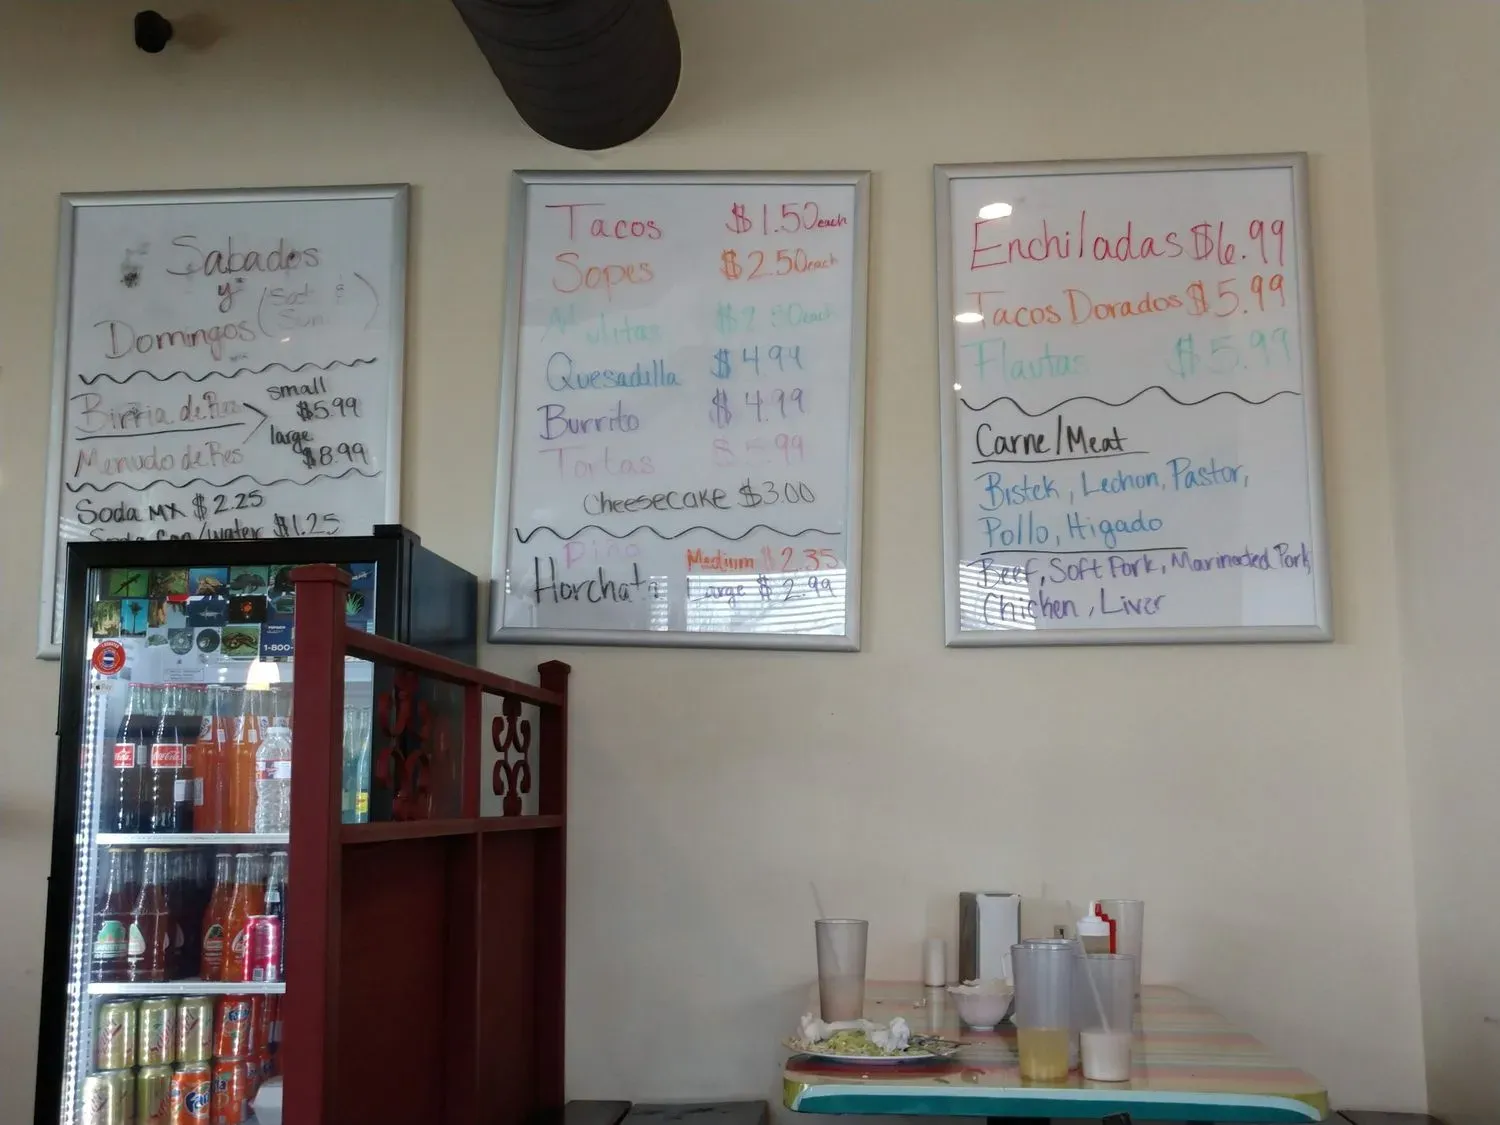 Sabados
y
Domingos (Sat &
Sun.)
Birria de Res
Menudo de Res
small
$5.99
large
$8.99
Soda MX $2.25
Soda Can/water $1.25
Tacos $1.50 each
Sopes $2.50 each
Mulitas $2.50 each
Quesadilla $4.99
Burrito $4.99
Tortas $5.99
Cheesecake $3.00
Piña
Horchata
Medium $2.35
Large $2.99
Enchiladas $6.99
Tacos Dorados $5.99
Flautas $5.99
Carne/Meat
Bistek, Lechon, Pastor,
Pollo, Higado
Beef, Soft Pork, Marinated Pork,
Chicken, Liver
1-800-
Coca-Cola
Coca-Cola
Fanta